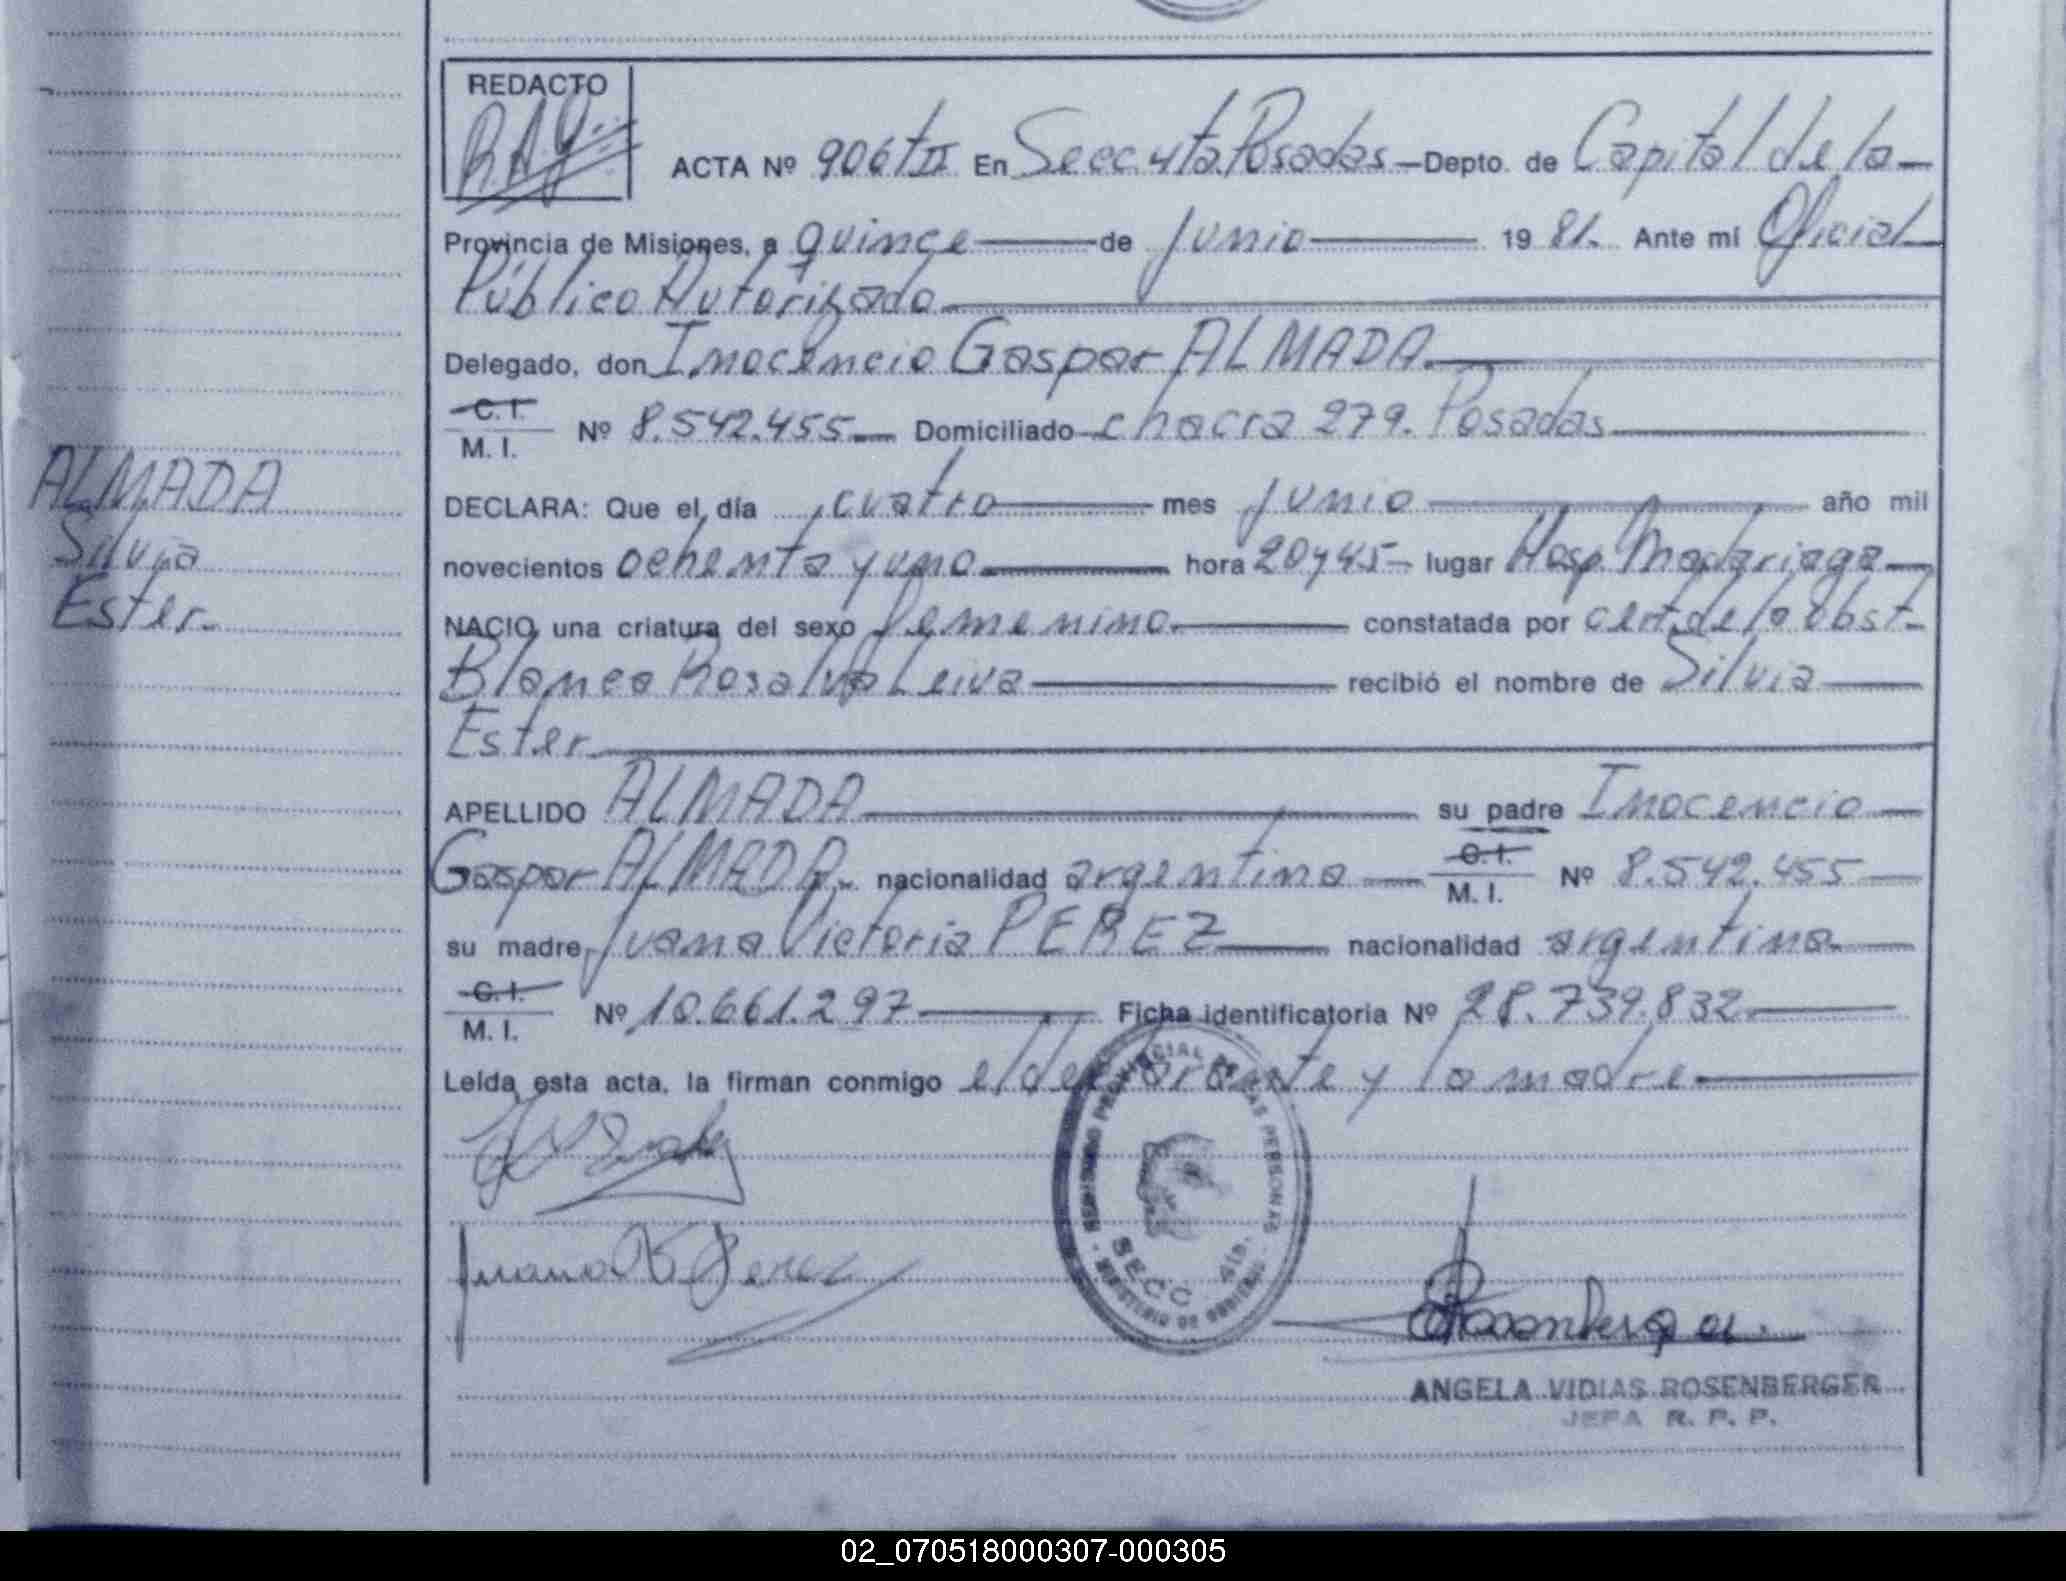 REDACTO
ACTA Nº 906 tII En Secc. 4ta. Posadas - Depto. de Capital de la
Provincia de Misiones, a quince de junio 1981. Ante mí Oficial
Público Autorizado
Delegado, don Inocencio Gaspar ALMADA
C. I.
M. I. Nº 8.542.455 Domiciliado chacra 279. Posadas
DECLARA: Que el día cuatro mes junio año mil
novecientos ochenta y uno hora 20 y 45 lugar Hosp. Madariaga
NACIO una criatura del sexo femenino constatada por cert. de la obst.
Blanca Rosalva Leiva recibió el nombre de Silvia
Ester
ALMADA
Silvia
Ester
APELLIDO ALMADA su padre Inocencio
Gaspar ALMADA nacionalidad argentina C. I. M. I. Nº 8.542.455
su madre, Juana Victoria PEREZ nacionalidad argentina
C. I.
M. I. Nº 10.661.297 Ficha identificatoria Nº 28.739.832
Leída esta acta, la firman conmigo el declarante y la madre
Juana V Perez
REGISTRO PROVINCIAL DE LAS PERSONAS
SECC 4ta.
MINISTERIO DE GOBIERNO
ANGELA VIDIAS ROSENBERGER
JEFA R. P. P.
02_070518000307-000305